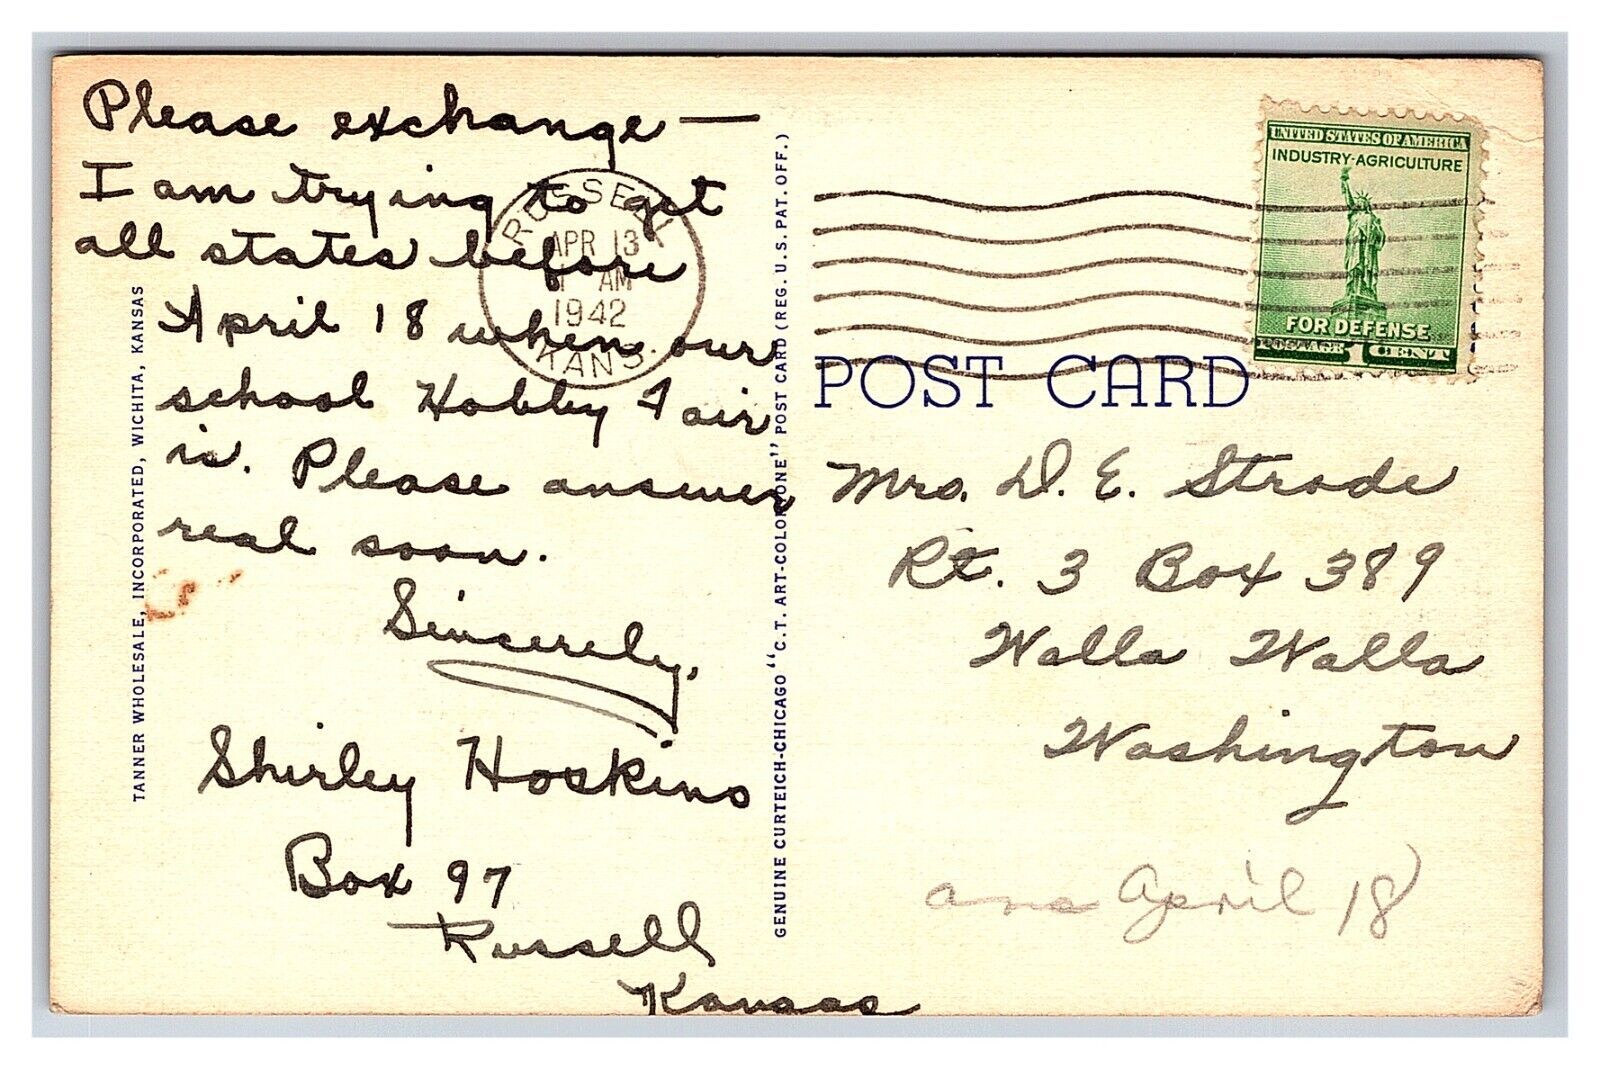 Please exchange —
I am trying to get
all states before
April 18 when our
school Hobby Fair
is. Please answer
real soon.
Sincerely,
Shirley Hoskins
Box 97
Russell
Kansas
TANNER WHOLESALE, INCORPORATED, WICHITA, KANSAS
RUSSELL
APR 13
AM
1942
KANS.
GENUINE CURTEICH-CHICAGO "C.T. ART-COLORTONE" POST CARD (REG. U.S. PAT. OFF.)
UNITED STATES OF AMERICA
INDUSTRY-AGRICULTURE
FOR DEFENSE
POSTAGE 1 CENT
POST CARD
Mrs. D. E. Strode
Rt. 3 Box 389
Walla Walla
Washington
ans April 18